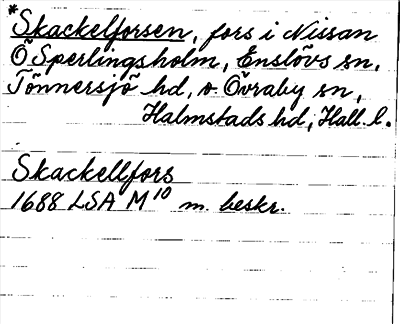 *Skackelforsen, fors i Nissan
Ö Sperlingsholm, Enslövs sn,
Tönnersjö hd, o. Övraby sn,
Halmstads hd, Hall. l.
Skackellfors
1688 LSA M10 m. beskr.